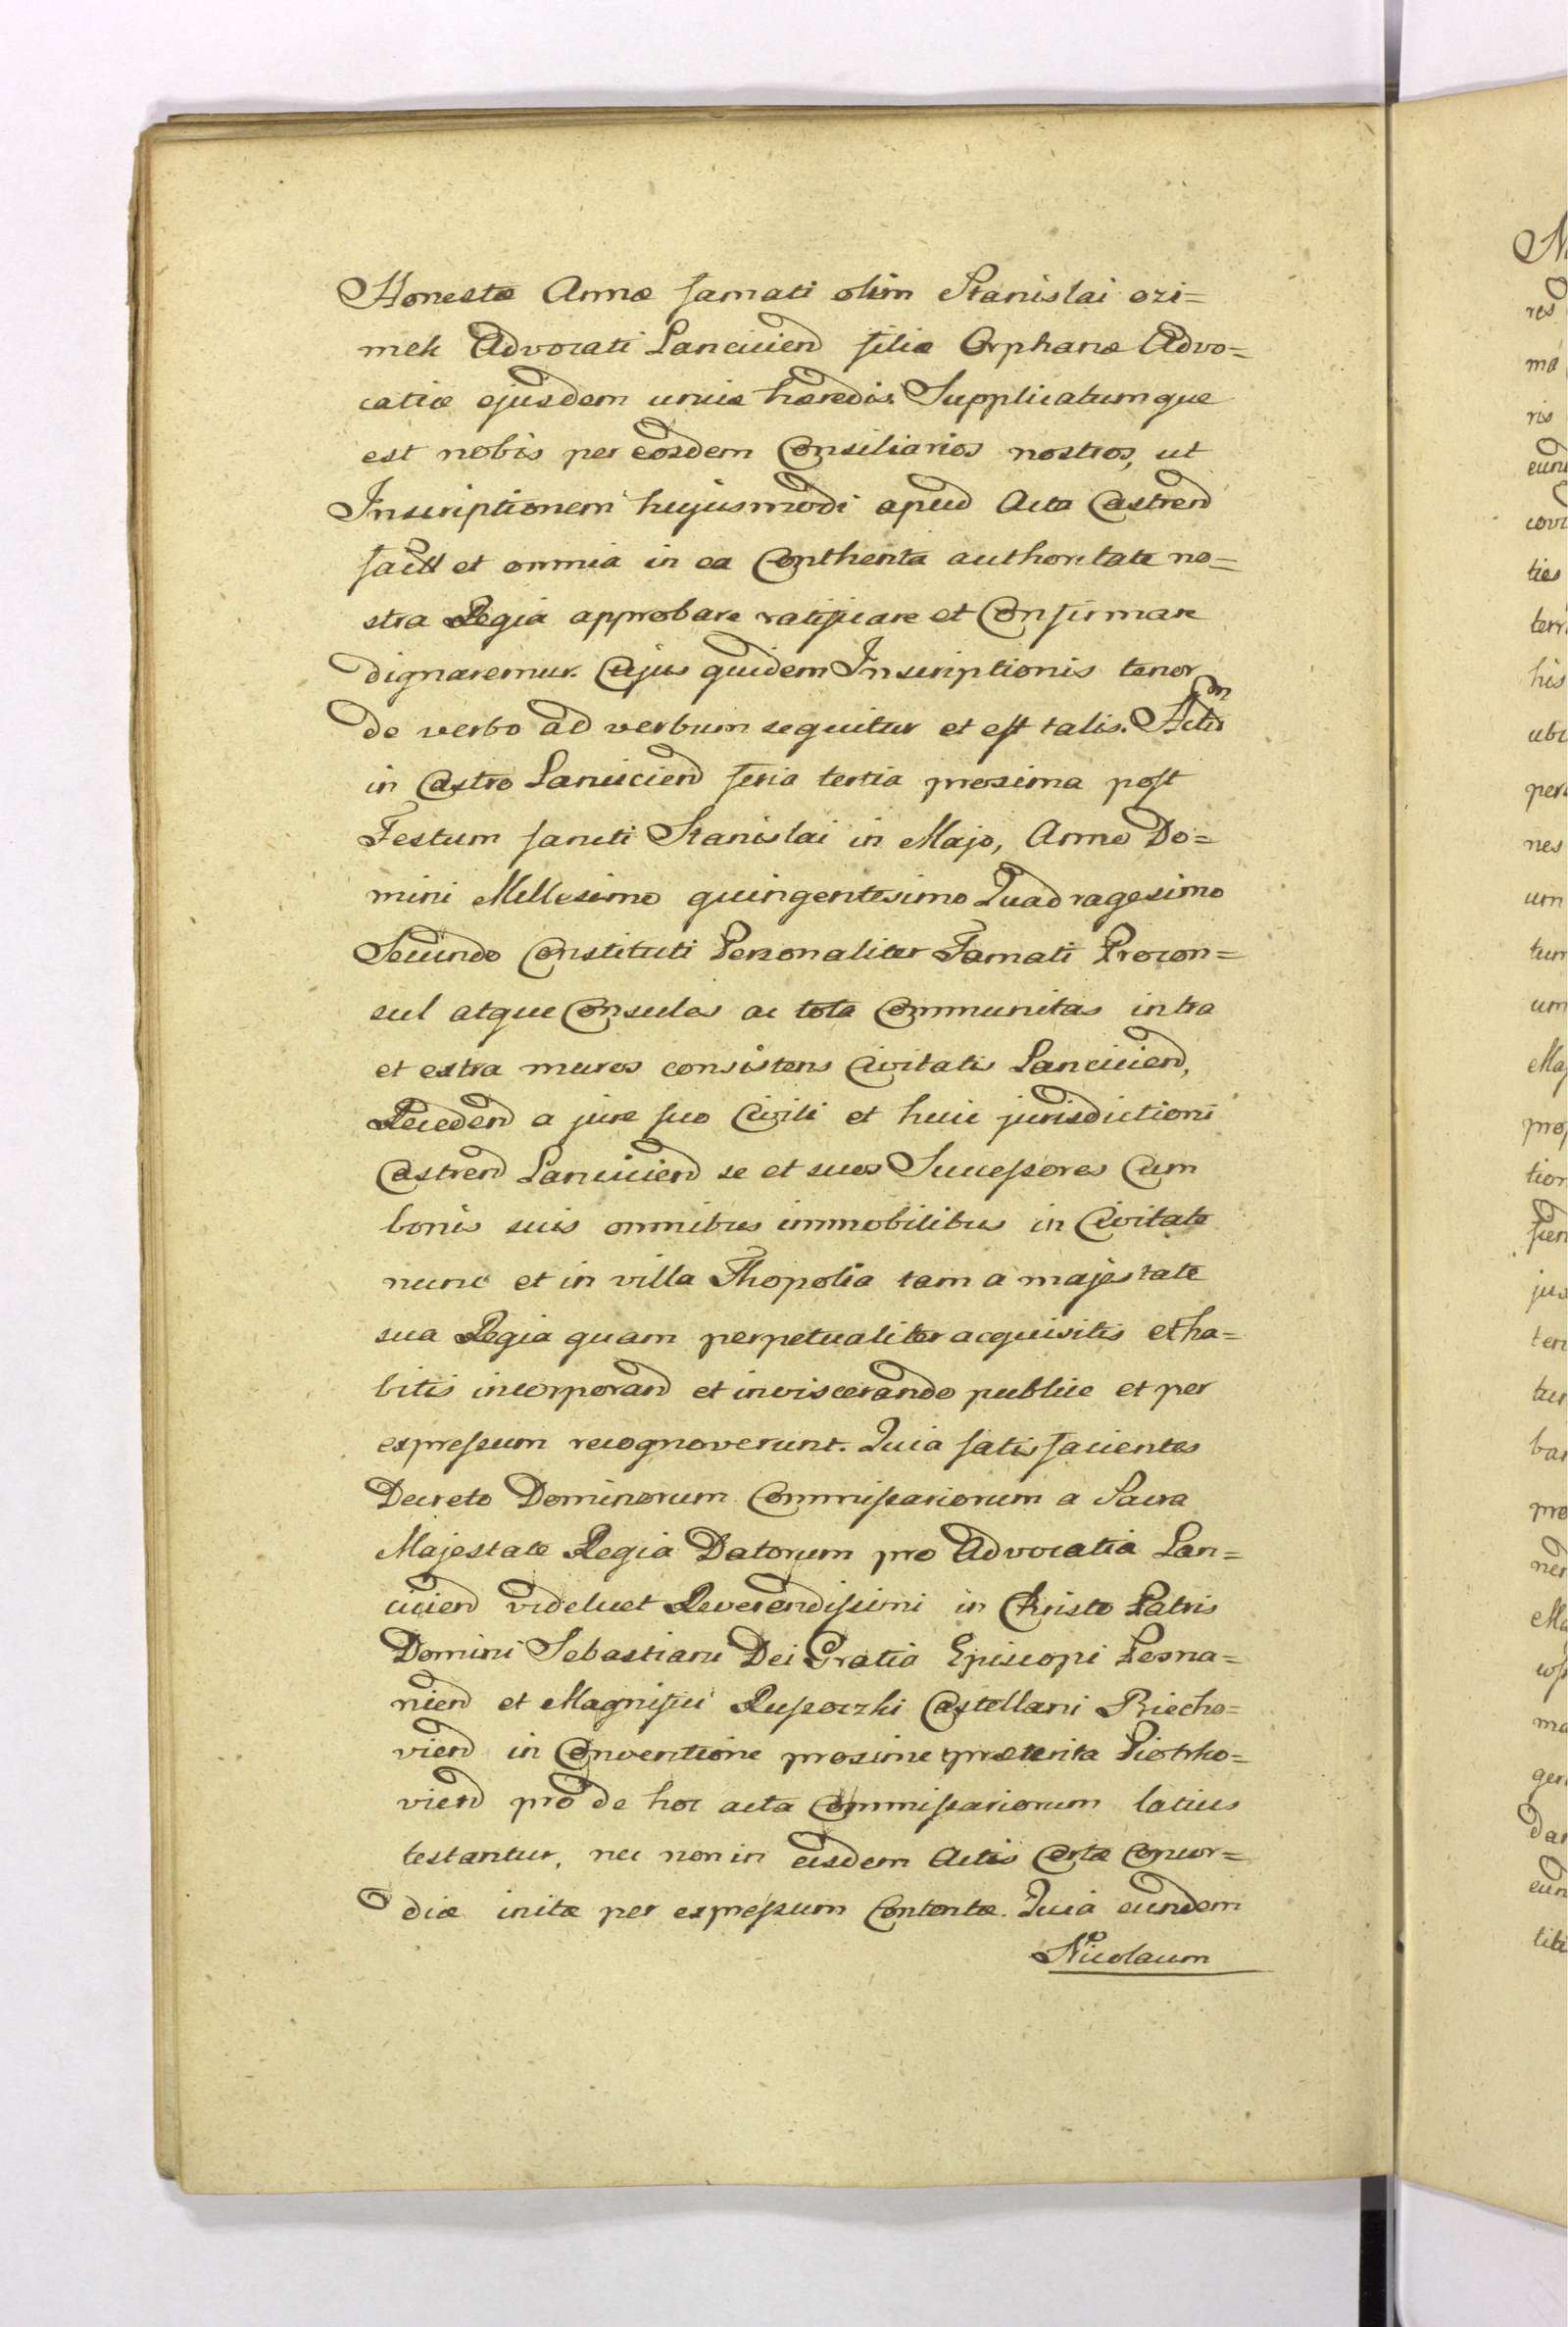 Honestæ Annæ famati olim Stanislai ozi=
mek Advocati Lanciciend filiæ Orphanæ Advo=
catiæ ejusdem unicæ hæredis. Supplicatumque
est nobis per eosdem Consiliarios nostros, ut
Inscriptionem hujusmodi apud Acta Castrend
fact et omnia in ea Conthenta authoritate no=
stra Regia approbare ratificare et Confirmare
dignaremur. Cujus quidem Inscriptionis tenor
de verbo ad verbum sequitur et est talis.
in Castro Lanicciend feria tertia proxima post
Festum sancti Stanislai in Majo, Anno Do=
mini Millesimo quingentesimo Quadragesimo
Secundo Constituti Personaliter Famati Procon=
sul atque Consules ac tota Communitas intra
et extra muros consistens Civitatis Lanciciend,
Recedend a jure suo Civili et huic jurisdictioni
Castrend Lanciciend se et suos Successores Cum
bonis suis omnibus immobilibus in Civitate
nunc et in villa Thopolia tam a majestate
sua Regia quam perpetualiter acquisitis et ha=
bitis incorporand et inviscerando publice et per
expressum recognoverunt. Quia satisfacientes
Decreto Dominorum Commissariorum a Sacra
Majestate Regia Datorum pro Advocatia Lan=
ciciend videlicet Reverendissimi in Christo Patris
Domini Sebastiani Dei Gratia Episcopi Posna=
niend et Magnifici Rusoczki Castellani Biecho=
viend in Conventione proxime præterita Piotrko=
viend pro de hoc acta Commissariorum latius
testantur, nec non in eisdem Actis Certæ Concor=
diæ initæ per expressum Contentæ. Quia eundem
Nicolaum